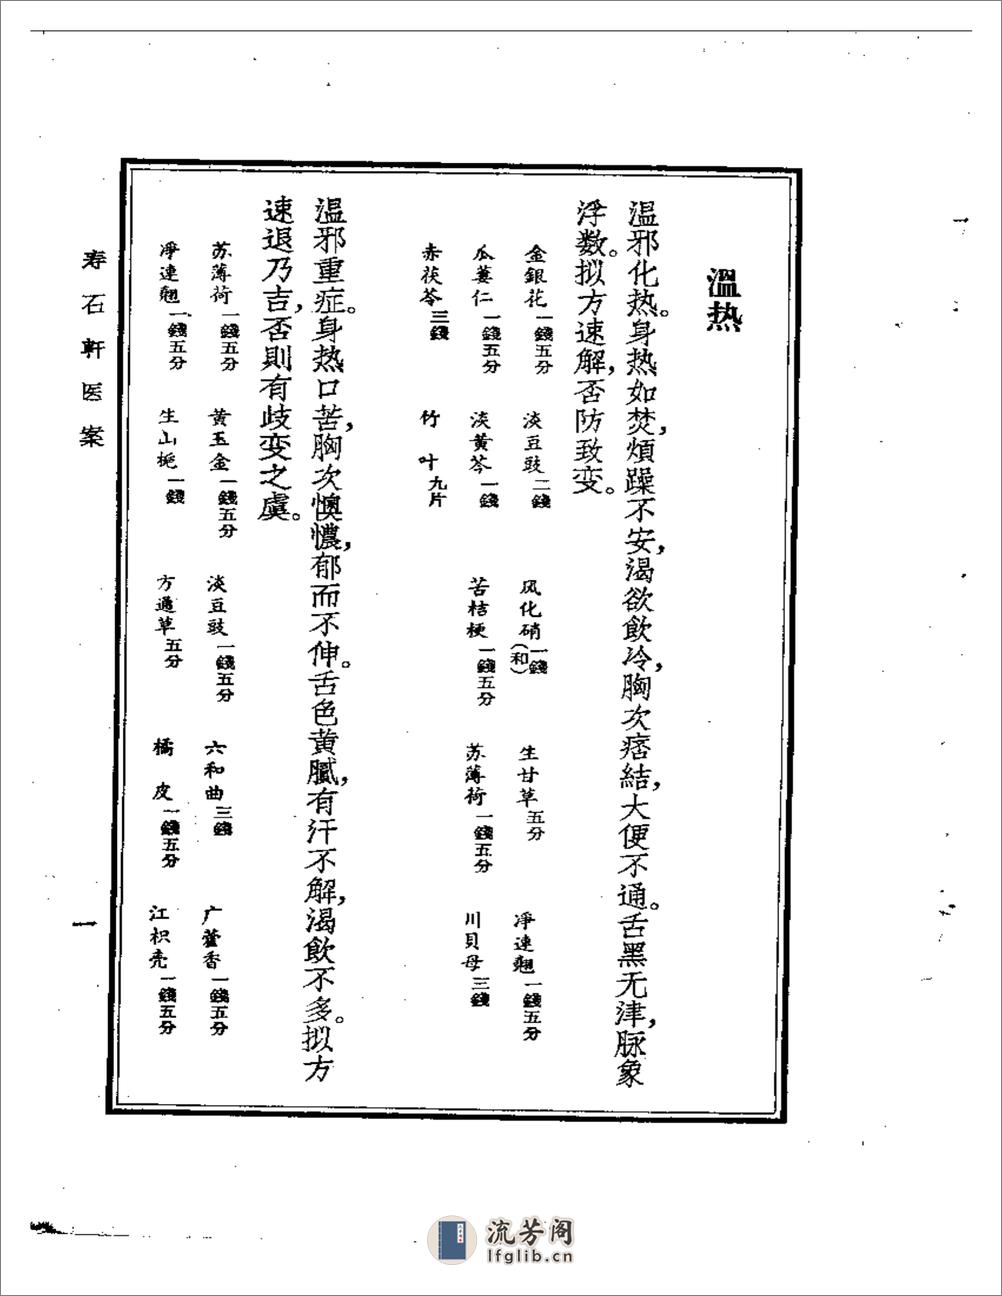 溫热
溫邪化热。身热如焚，煩躁不安，渴欲飲冷，胸次痞結，大便不通。舌黑无津，脉象
浮数。拟方速解，否防致变。
金銀花一錢五分 淡豆豉二錢 风化硝一錢(和) 生甘草五分 淨連翹一錢五分
瓜蔞仁一錢五分 淡黄芩一錢 苦桔梗一錢五分 苏薄荷一錢五分 川貝母三錢
赤茯苓三錢 竹叶九片
溫邪重症。身热口苦，胸次懊憹，郁而不伸。舌色黄膩，有汗不解，渴飲不多。拟方
速退乃吉，否則有歧变之虞。
苏薄荷一錢五分 黄玉金一錢五分 淡豆豉一錢五分 六和曲三錢 广藿香一錢五分
淨連翹一錢五分 生山梔一錢 方通草五分 橘皮一錢五分 江枳壳一錢五分
寿石軒医案
一
流芳阁
lfglib.cn